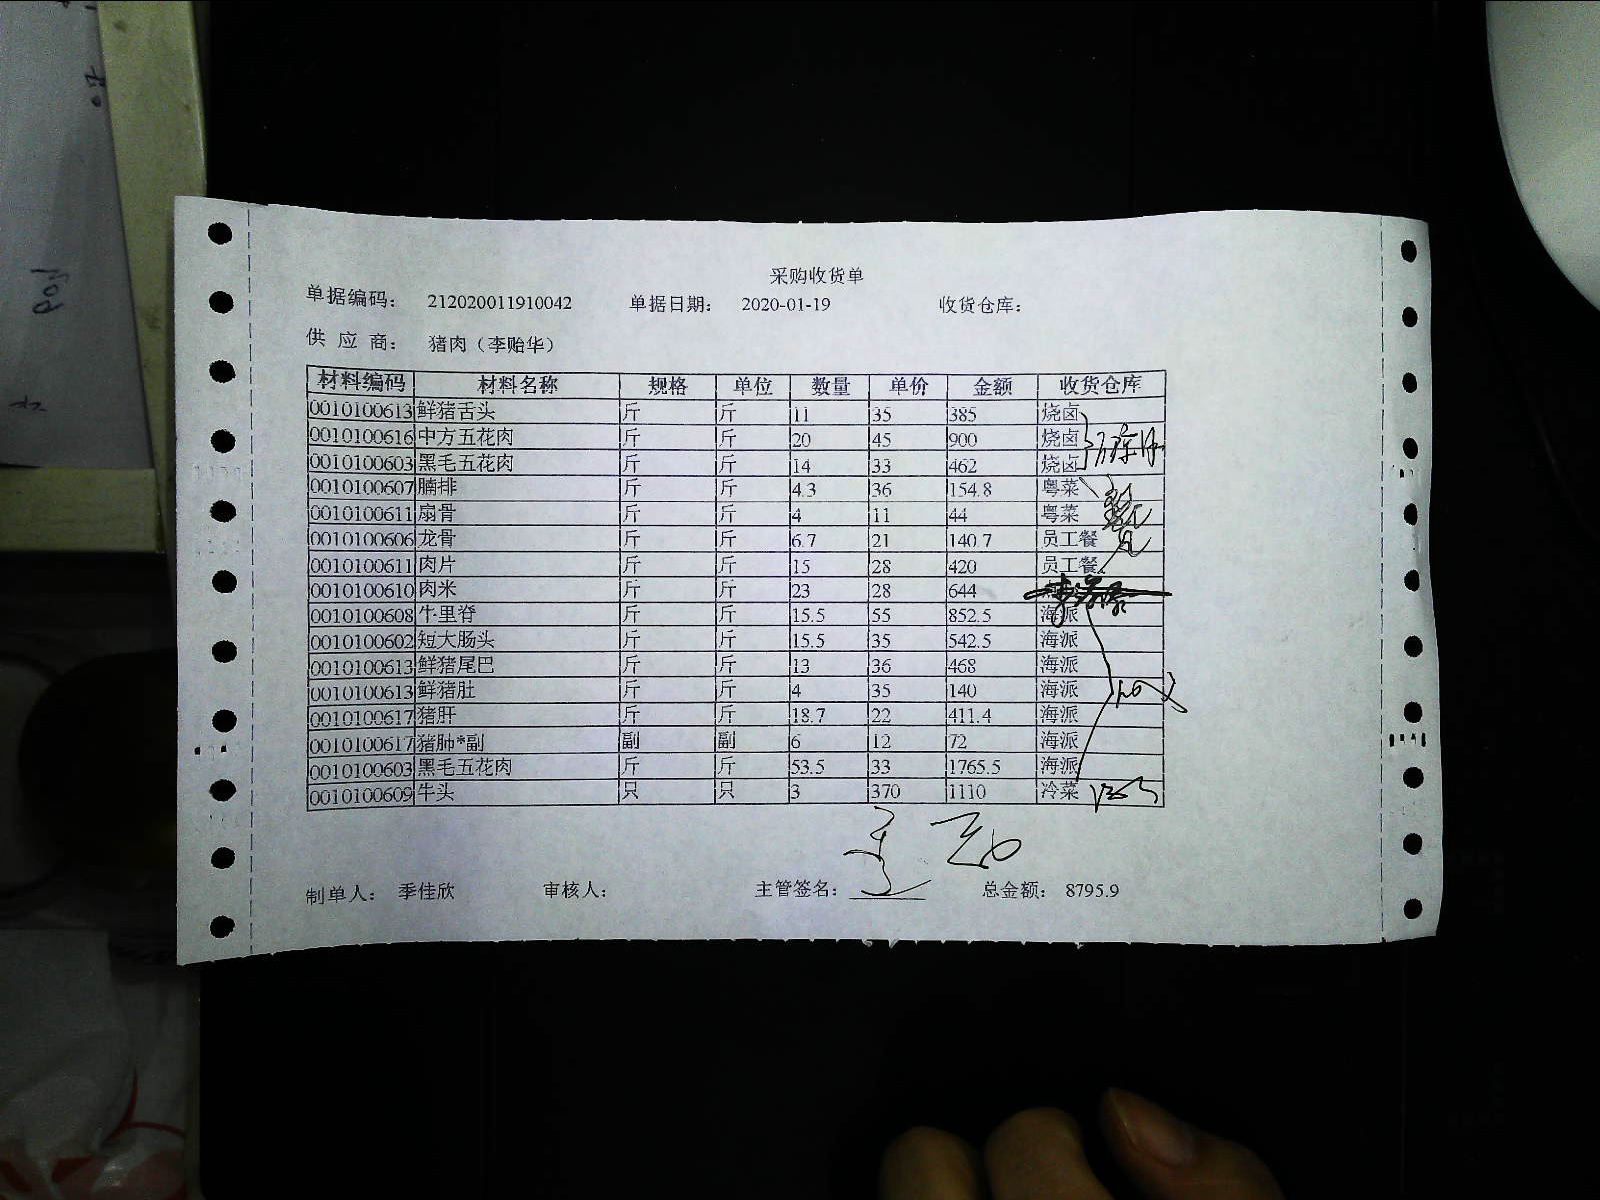 采购收货单
单据编码： 212020011910042 单据日期： 2020-01-19 收货仓库：
供 应 商： 猪肉（李贻华）
材料编码 材料名称 规格 单位 数量 单价 金额 收货仓库
0010100613 鲜猪舌头 斤 斤 11 35 385 烧卤
0010100616 中方五花肉 斤 斤 20 45 900 烧卤
0010100603 黑毛五花肉 斤 斤 14 33 462 烧卤
0010100607 腩排 斤 斤 4.3 36 154.8 粤菜
0010100611 扇骨 斤 斤 4 11 44 粤菜
0010100606 龙骨 斤 斤 6.7 21 140.7 员工餐
0010100611 肉片 斤 斤 15 28 420 员工餐
0010100610 肉米 斤 斤 23 28 644
0010100608 牛里脊 斤 斤 15.5 55 852.5 海派
0010100602 短大肠头 斤 斤 15.5 35 542.5 海派
0010100613 鲜猪尾巴 斤 斤 13 36 468 海派
0010100613 鲜猪肚 斤 斤 4 35 140 海派
0010100617 猪肝 斤 斤 18.7 22 411.4 海派
0010100617 猪肺*副 副 副 6 12 72 海派
0010100603 黑毛五花肉 斤 斤 53.5 33 1765.5 海派
0010100609 牛头 只 只 3 370 1110 冷菜
制单人： 季佳欣 审核人： 主管签名： 总金额： 8795.9